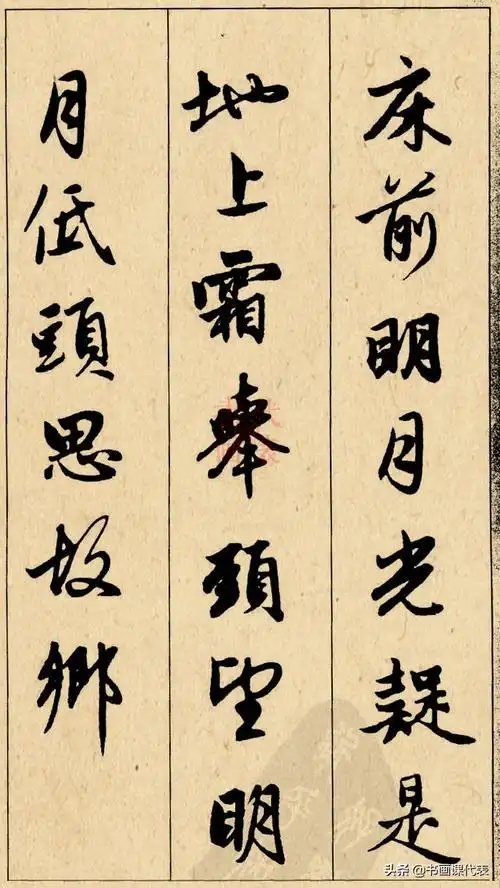 床前明月光疑是
地上霜舉頭望明
月低頭思故鄉
头条 @书画课代表